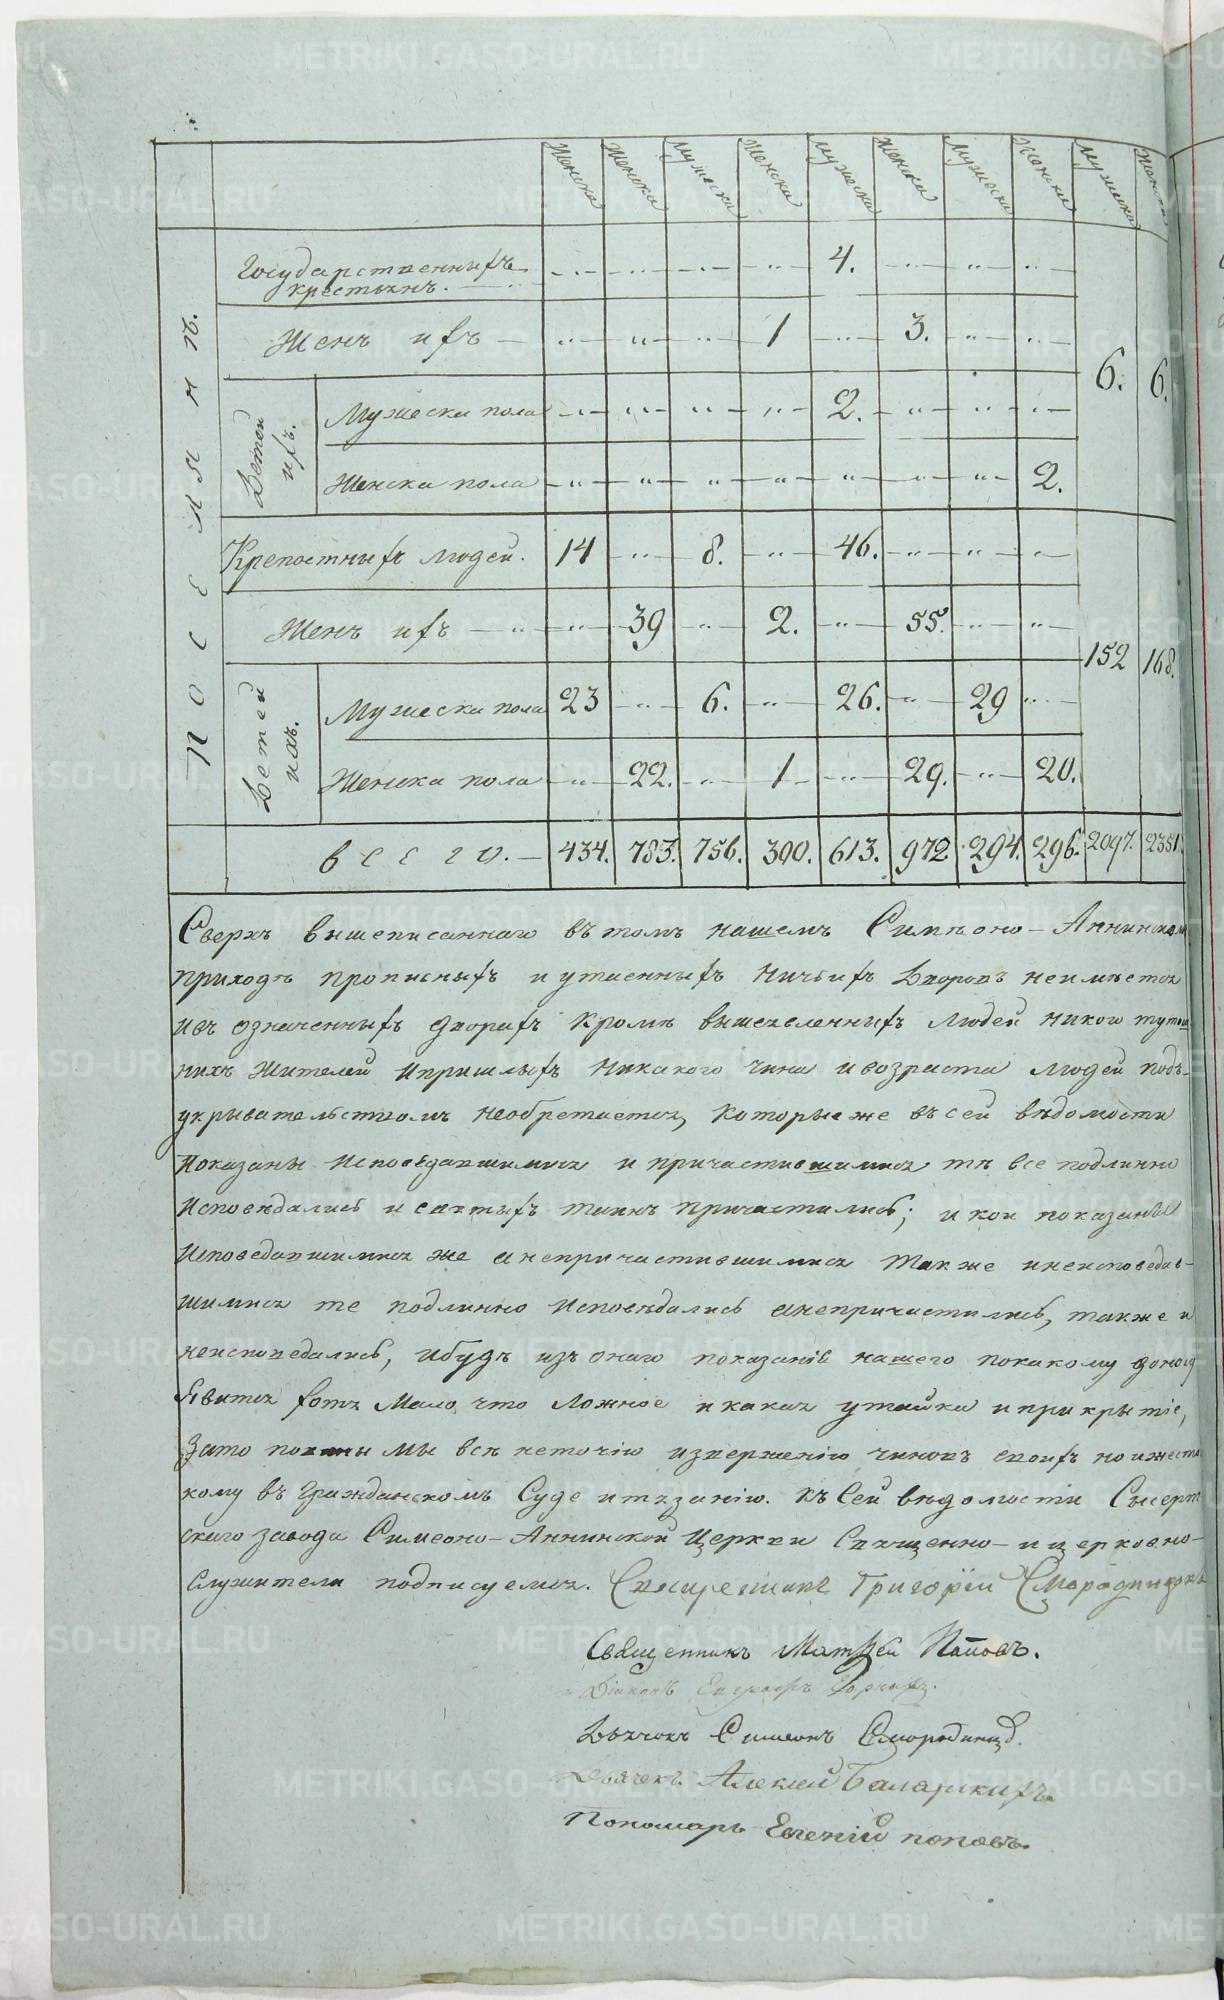 Женска Женска Мужеска Женска Мужеска Женска Мужеска Женска Мужеска
ПОСЕЛЯНЪ.
Государственныхъ крестьянъ. 4. 6. 6.
Женъ ихъ 1 3.
Детей ихъ.
Мужеска пола 2.
Женска пола 2.
Крепостныхъ людей. 14 8. 46. 152 168.
Женъ ихъ 39 2. 55.
Детей ихъ.
Мужеска пола 23 6. 26. 29
Женска пола 22. 1 29. 20.
Всего. 434. 783. 756. 300. 613. 972. 294. 296. 2097. 2351.
Сверхъ вышеписаннаго въ томъ нашемъ Симѣоно-Аннинскомъ
приходѣ прописныхъ и утаенныхъ ничьихъ дворовъ неимѣется
ивъ означенныхъ дворахъ кромѣ вышеявленныхъ людей никого тутош
нихъ жителей ипришлыхъ никакого чина ивозраста людей подъ
укрывательствомъ необретается, которыеже въ сей вѣдомости
показаны исповѣдавшимися и причастившимися тѣ все подлинно
исповѣдались и святыхъ таинъ причастились; и кои показаны
исповедавшимися же анепричастившимися также инеисповедав-
шимися те подлинно исповѣдались анепричастились, также и
неисповедались, ибудѣ изъ онаго показанія нашего покакому доносу
явится хотя мало, что ложное икакая утайка иприкрытіе,
зато повинны мы всѣ неточію изверженію чиновъ своихъ ноижесто
кому въ Гражданскомъ Суде истязанію. къ Сей вѣдомости Сысерт
скаго завода Симеоно-Аннинской Церкви Священно-ицерковно-
служители подписуемся. Григорій Смородинцовъ
Священникъ Матѳей Поповъ.
Діаконъ
Дьячокъ Симеонъ Смородинцов.
Дьячекъ Алексей
Пономарь Евгеній поповъ.
METRIKI.GASO-URAL.RU